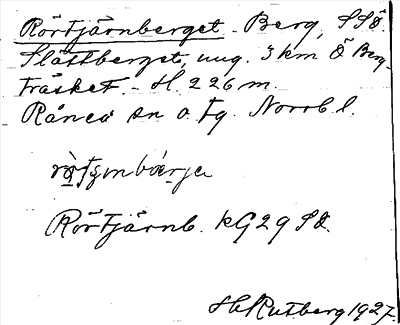 Rörtjärnberget - Berg, SSÖ.
Slåttberget, ung. 3 km Ö Berg-
träsket. - H. 226 m.
Råneå sn o tg. Norrb l.
Rörtjärnb. kG29 SO.
H Rutberg 1927.